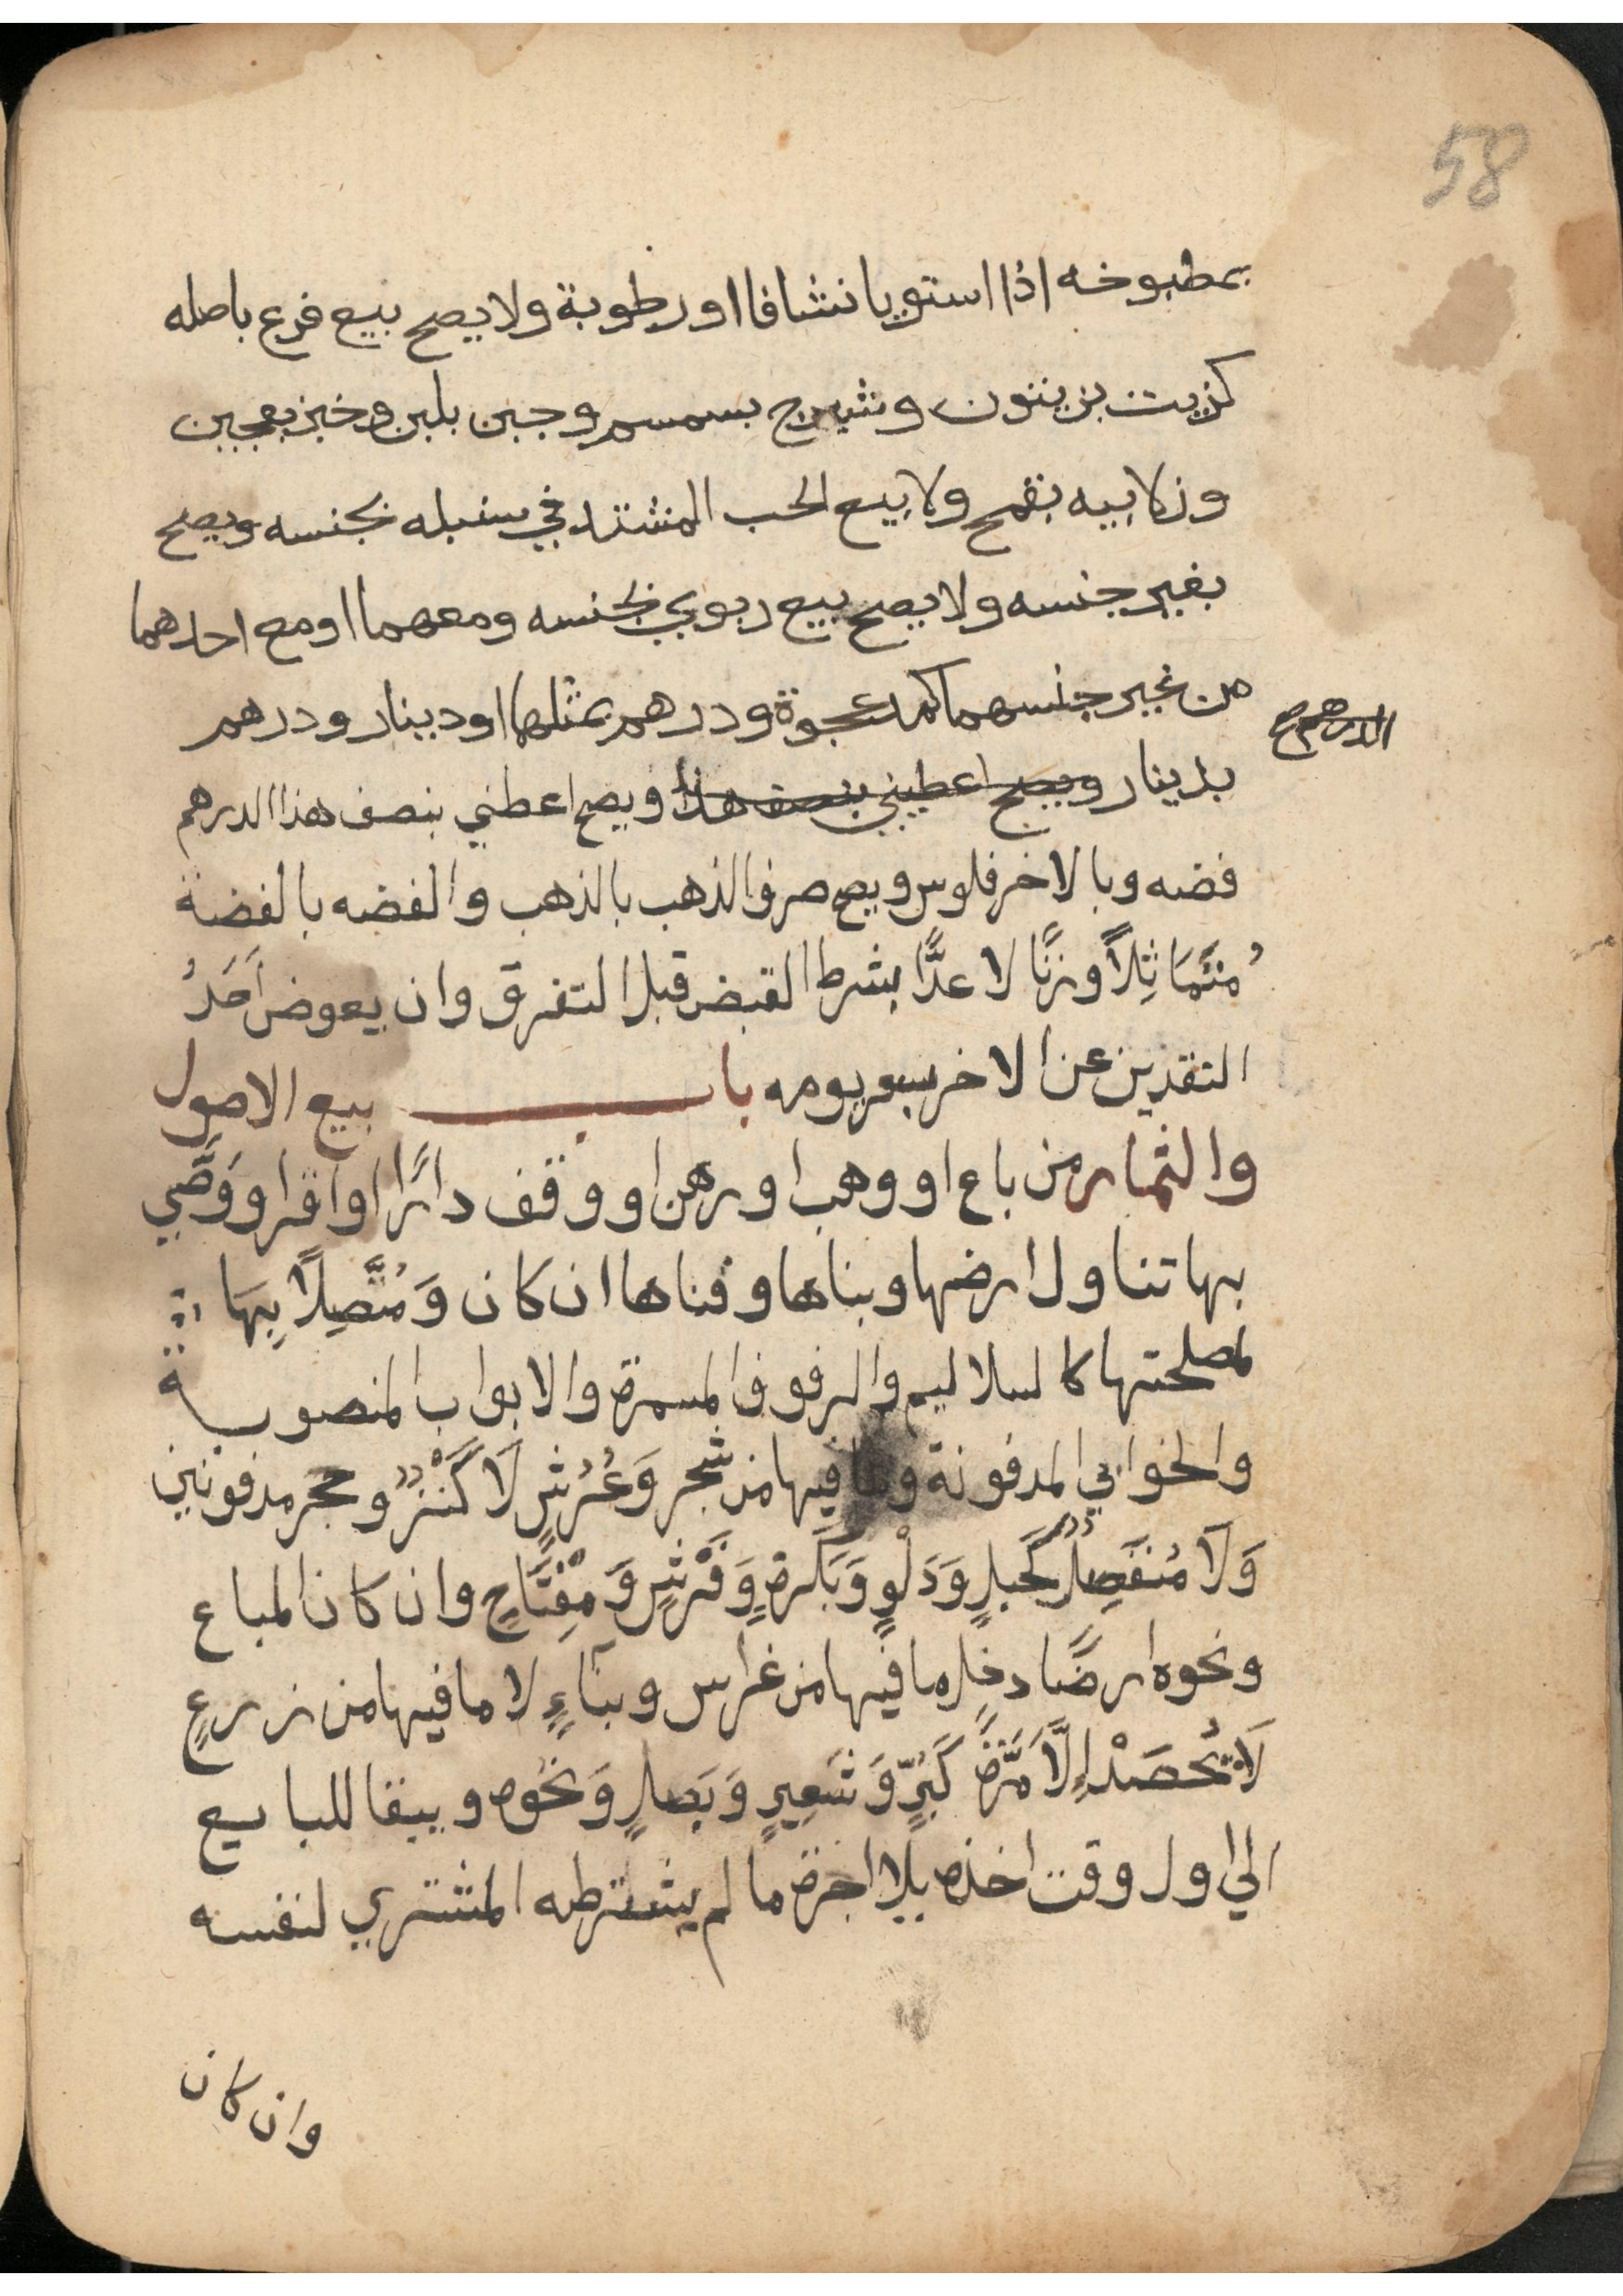 58
بمطبوخه اذا استويا نشافا او رطوبة ولا يصح بيع فرع باصله
كزيت بزيتون وشيرج بسمسم وجبن بلبن وخبز بعجين
وزلابيه بقمح ولا بيع الحب المشتد في سنبله بجنسه ويصح
بغير جنسه ولا يصح بيع ربوي بجنسه ومعهما او مع احدهما
من غير جنسهما كمد عجوة ودرهم بمثلهما او دينار ودرهم
الدرهم صح
بدينار ويصح اعطيني بنصف هذا ويصح اعطني بنصف هذا الدرهم
فضه وبالاخر فلوس ويصح صرف الذهب بالذهب والفضه بالفضة
مُتَمَاثِلاً وزنًا لا عدًّا بشرط القبض قبل التفرق وان يعوض اَحَدُ
النقدين عن الاخر بسعر يومه باب بيع الاصول
والثمار من باع او وهب او رهن او وقف دارًا او اقر او وَصَّي
بها تناول ارضها وبناها وفناها ان كان وَمُتَّصِلاً بِهَا
لمصلحتها كالسلاليم والرفوف المسمرة والابواب المنصوبة
والخوابي المدفونة وما فيها من شجر وَعُرُشٍ لَا كَنْزٌ وحجر مدفونين
وَلَا مُنفَصِلٌ كَحَبلٍ وَدَلْوٍ وَبَكَرةٍ وَفَرْشٍ وَمِفْتَاحٍ وان كان المباع
ونحوه ارضًا دخل ما فيها من غراس وبناءٍ لا ما فيها من زرعٍ
لَا يُحصَدْ اِلَّا مَرَّةً كَبُرٍّ وَشَعِيرٍ وَبَصلٍ وَنحْوه ويبقا للبايع
الي اول وقت اخذه بلا اجرة ما لم يشترطه المشتري لنفسه
وان كان